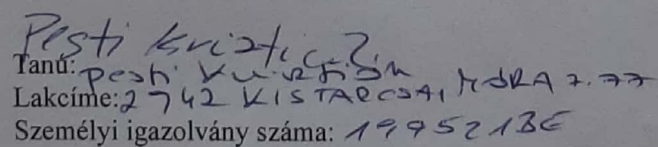 Pesti Krisztián
Tanú: Pesti Krisztián
Lakcíme: 2 KISTARCSA, MÓRA
Személyi igazolvány száma: 199521BE